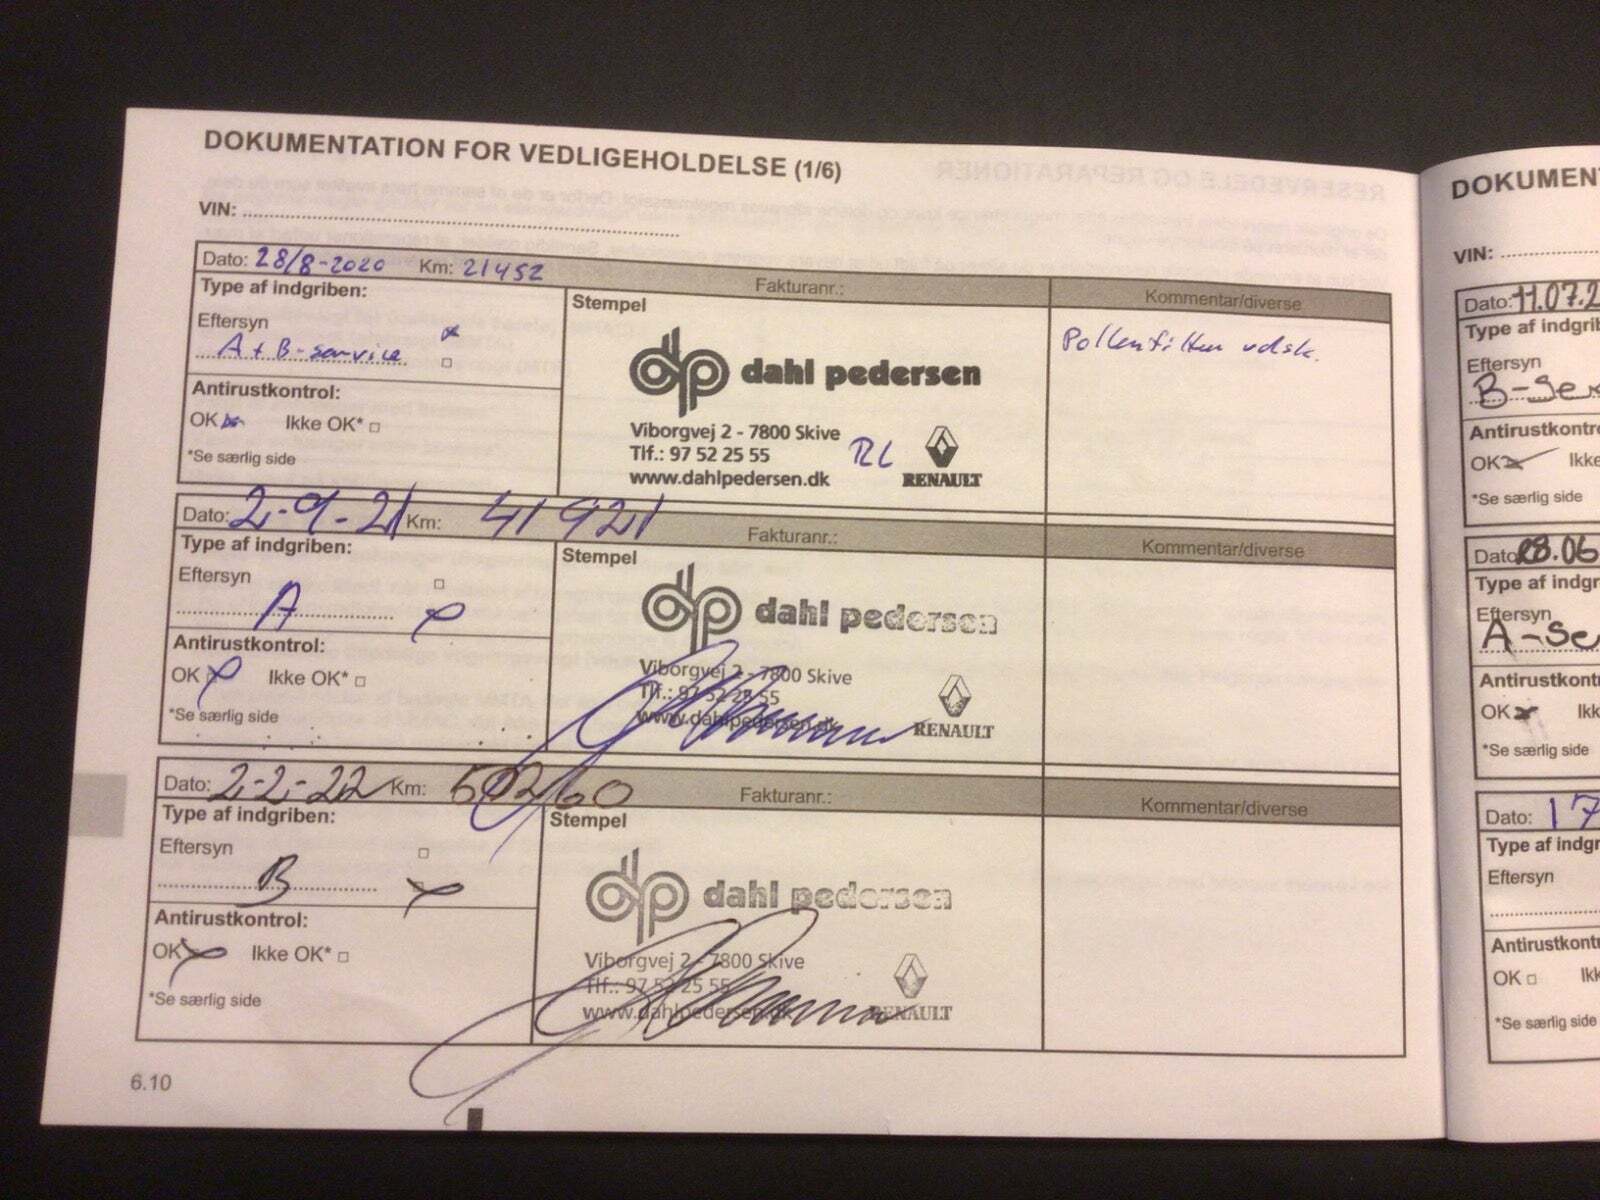 DOKUMENTATION FOR VEDLIGEHOLDELSE (1/6)
VIN:
Dato: 28/8-2020 Km: 21452 Fakturanr.: Kommentar/diverse
Type af indgriben: Stempel
Eftersyn
A+B-service
Pollenfilter udsk.
dp dahl pedersen
Antirustkontrol:
OK Ikke OK*
*Se særlig side
Viborgvej 2 - 7800 Skive
Tlf.: 97 52 25 55
www.dahlpedersen.dk
RL
RENAULT
Dato: 2-9-21 Km: 41921 Fakturanr.: Kommentar/diverse
Type af indgriben: Stempel
Eftersyn
A
dp dahl pedersen
Antirustkontrol:
OK Ikke OK*
*Se særlig side
Viborgvej 2 - 7800 Skive
Tlf.: 97 52 25 55
www.dahlpedersen.dk
RENAULT
Dato: 2-2-22 Km: 50260 Fakturanr.: Kommentar/diverse
Type af indgriben: Stempel
Eftersyn
B
dp dahl pedersen
Antirustkontrol:
OK Ikke OK*
*Se særlig side
Viborgvej 2 - 7800 Skive
Tlf.: 97 52 25 55
www.dahlpedersen.dk
RENAULT
6.10
DOKUMENT
VIN:
Dato: 11.07.2
Type af indgri
Eftersyn
B-Se
Antirustkontro
OK Ikke
*Se særlig side
Dato 28.06
Type af indgr
Eftersyn
A-Se
Antirustkont
OK Ikk
*Se særlig side
Dato: 17
Type af indgr
Eftersyn
Antirustkont
OK Ik
*Se særlig side